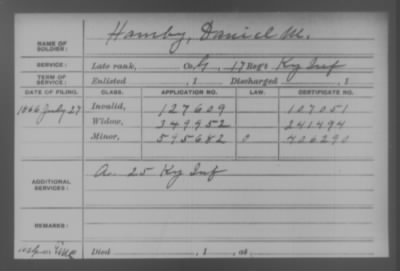 Hamby, Daniel M.
NAME OF SOLDIER:
SERVICE: Late rank, Co. G, 17 Reg't Ky Inf
TERM OF SERVICE: Enlisted , 1 Discharged , 1
DATE OF FILING. CLASS. APPLICATION NO. LAW. CERTIFICATE NO.
1866 July 27 Invalid, 127609 107051
Widow, 349952 241494
Minor, 595682 0 406290
ADDITIONAL SERVICES: A. 25 Ky Inf
REMARKS:
Died , 1 , at